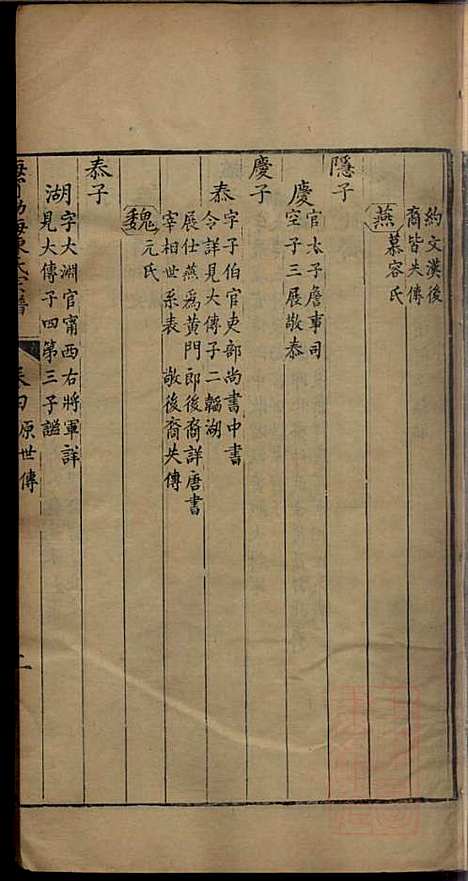 約文漢後
裔皆失傳
燕慕容氏
隱子
慶官太子詹事司
空子三展敬泰
慶子
泰字子伯官吏部尚書中書
令詳見大傳子二韜湖
展仕燕為黃門郎後裔詳唐書
宰相世系表 敬後裔失傳
魏元氏
泰子
湖字大淵官甯西右將軍詳
見大傳子四第三子謐
卷四原世傳